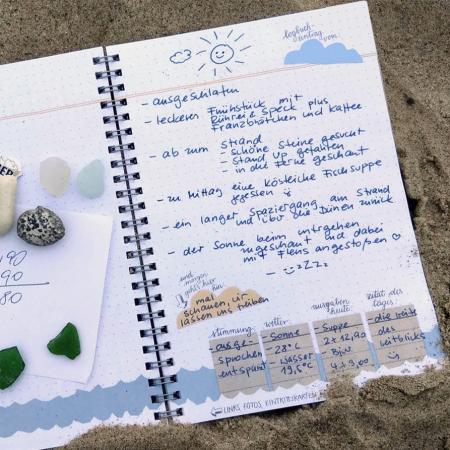 logbuch-
eintrag vom:
- ausgeschlafen
- leckeren Frühstück mit
Rührei & Speck plus
Franzbrötchen und Kaffee
- ab zum Strand
- schöne Steine gesucht
- Stand up gefahren
- in die Ferne geschaut
- zu Mittag eine köstliche Fischsuppe
gegessen
- ein langer Spaziergang am Strand
und über die Dünen zurück
- der Sonne beim untergehen
zugeschaut und dabei
mit Flens angestoßen
zZZz
und
morgen
geht's hier
hin:
mal
schauen, wir
lassen uns treiben
stimmung:
ausge-
sprochen
entspannt
wetter
Sonne
28°C
Wasser
19,5°C
ausgaben
heute:
Suppe
2x 12,90
Bier
4x9,00
zitat des
tages:
die weite
des
Weitblicks
LINKS, FOTOS, EINTRITTSKARTEN
90
90
80